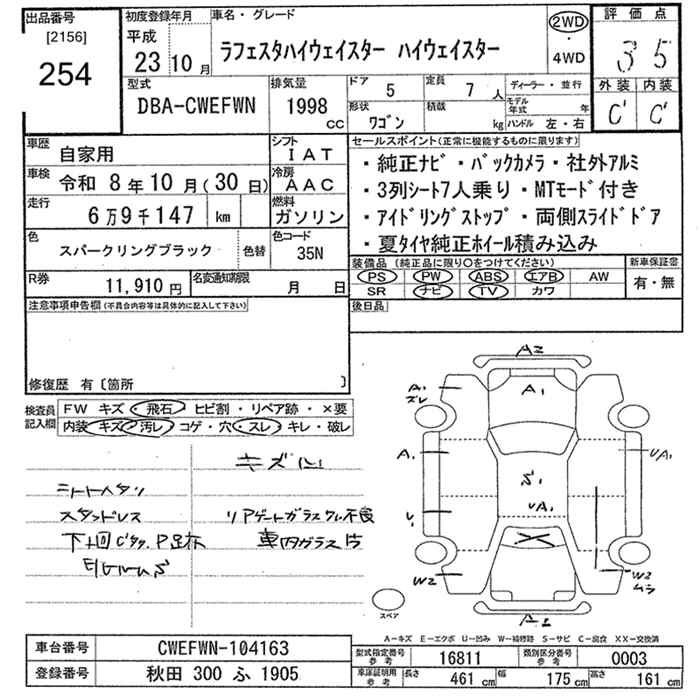 出品番号
[2156]
254
初度登録年月
平成
23 10 月
車名・グレード
ラフェスタハイウェイスター ハイウェイスター
2WD
・
4WD
評価点
3 5
外装 内装
C C
型式
DBA-CWEFWN
排気量
1998
cc
ドア 5
定員 7 人
形状 ワゴン
積載 kg
ディーラー・並行
モデル年式 年
ハンドル 左・右
車歴 自家用
シフト IAT
車検 令和 8年 10月(30日)
冷房 AAC
走行 6万9千147 km
燃料 ガソリン
色 スパークリングブラック 色替
色コード 35N
R券 11,910 円
名変通知期限 月 日
セールスポイント(正常に機能するものに限ります)
・純正ナビ・バックカメラ・社外アルミ
・3列シート7人乗り・MTモード付き
・アイドリングストップ・両側スライドドア
・夏タイヤ純正ホイール積み込み
装備品(純正品に限り〇をつけてください)
PS PW ABS エアB AW
SR ナビ TV カワ
新車保証書
有・無
後日品
注意事項申告欄(不具合内容等は具体的に記入して下さい)
修復歴 有〔箇所 〕
検査員記入欄
FW キズ・飛石・ヒビ割・リペア跡・×要
内装 キズ・汚レ・コゲ・穴・スレ・キレ・破レ
リアゲートガラス
車内ガラス
A2
A1
A1
A1
S1
UA1
UA1
W2
W2
ムラ
A2
スペア
A-キズ E-エクボ U-凹み W-補修跡 S-サビ C-腐食 XX-交換済
車台番号 CWEFWN-104163
登録番号 秋田 300 ふ 1905
型式指定番号 参考 16811
類別区分番号 参考 0003
車庫証明用 参考 長さ 461 cm 幅 175 cm 高さ 161 cm